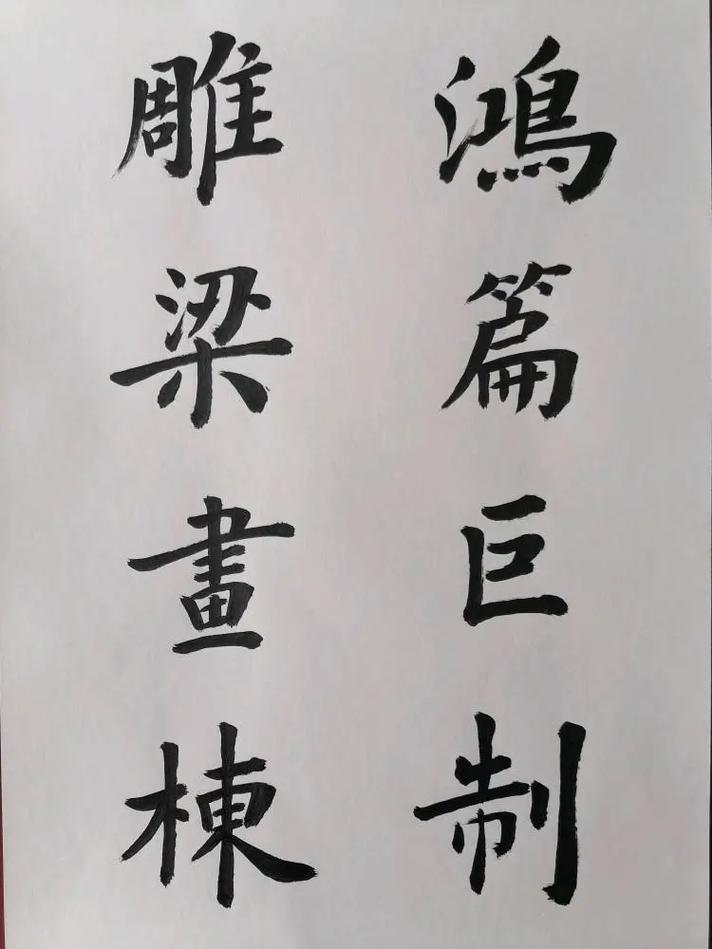 鴻篇巨制
雕梁畫棟